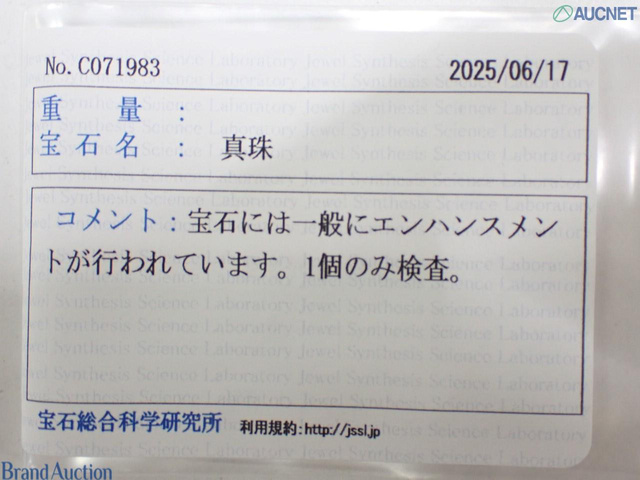 AUCNET
No.C071983 2025/06/17
重量：
宝石名： 真珠
コメント：宝石には一般にエンハンスメン
トが行われています。1個のみ検査。
宝石総合科学研究所 利用規約：http://jssl.jp
Brand Auction